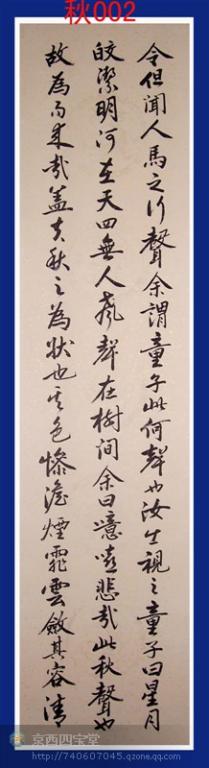 秋002
令但聞人馬之行聲余謂童子此何聲也汝出視之童子曰星月
皎潔明河在天四無人聲聲在樹间余曰噫嘻悲哉此秋聲也
故為而来哉蓋夫秋之為狀也其色慘澹煙霏雲斂其容清
京西四宝堂
http://740607045.qzone.qq.com